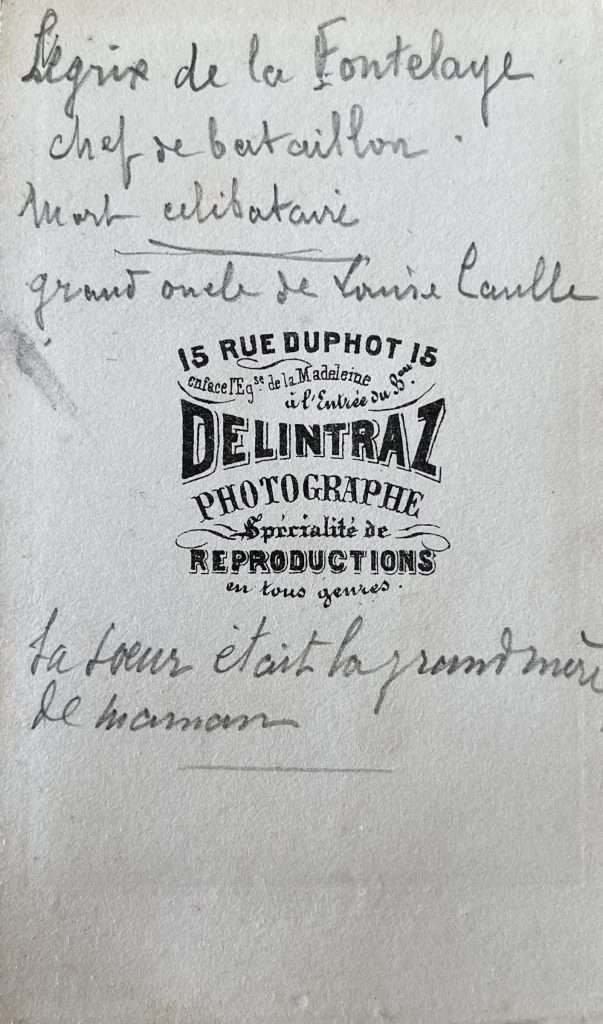 Legrix de la Fontelaye
chef de bataillon.
Mort celibataire
grand oncle de Louise Caulle
15 RUE DUPHOT 15
en face l'Egse. de la Madeleine
à l'Entrée du Bou.
DELINTRAZ
PHOTOGRAPHE
Spécialité de
REPRODUCTIONS
en tous genres.
Sa soeur était la grand mère
de maman